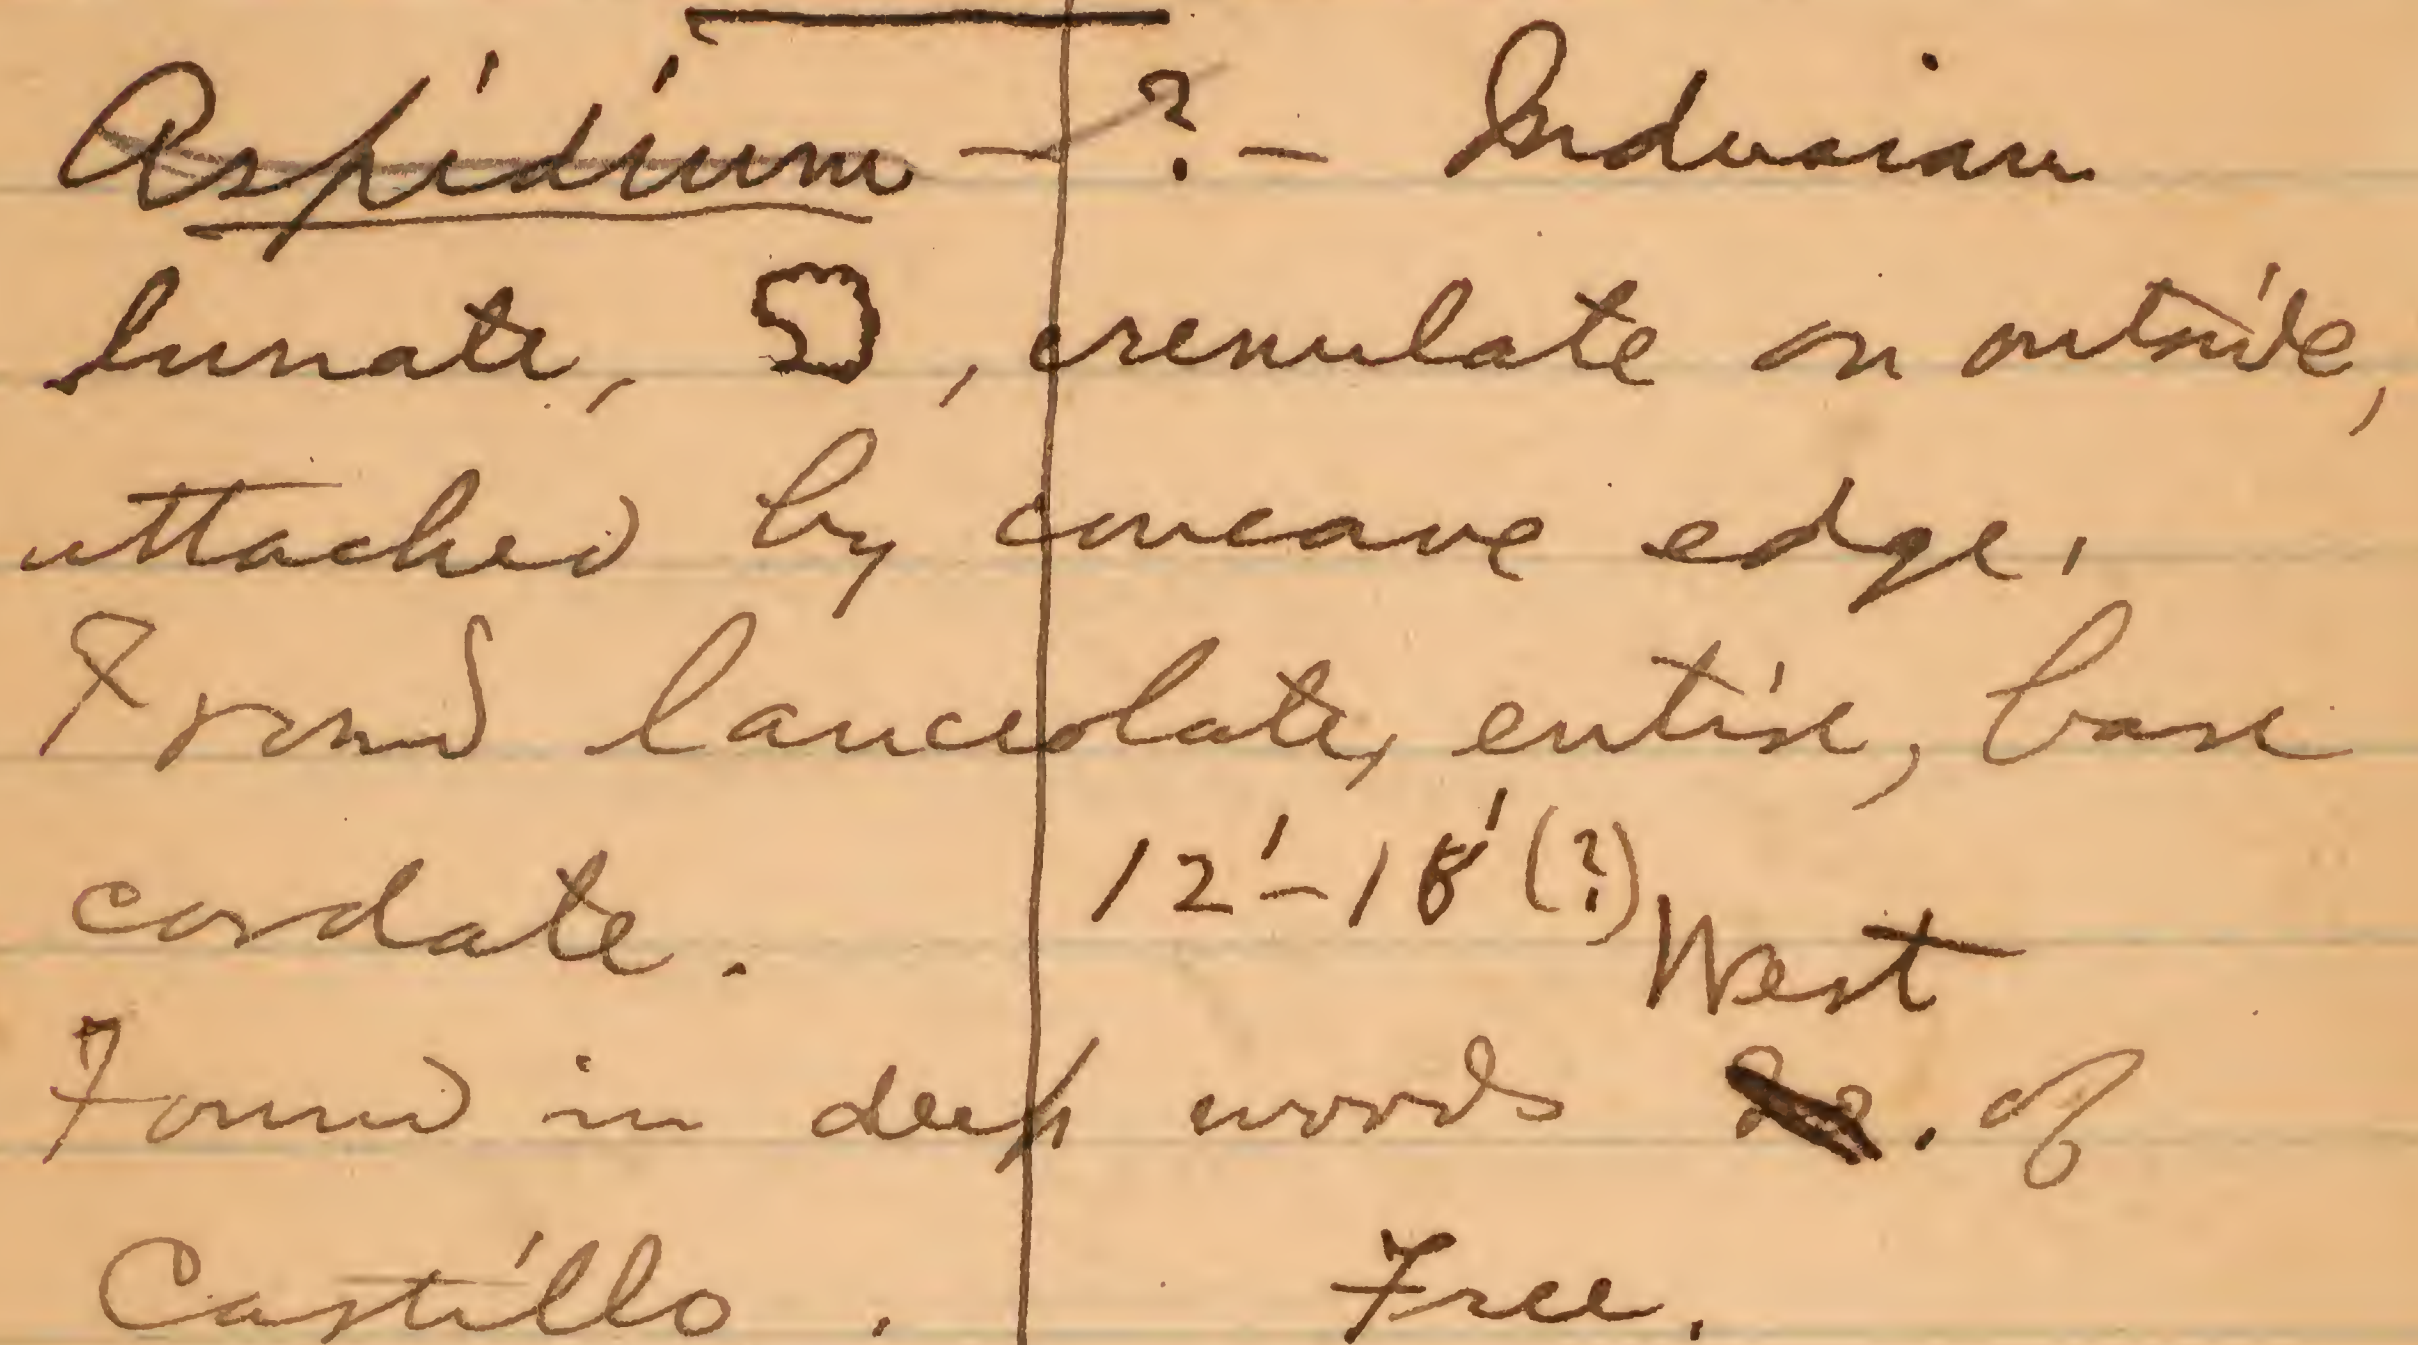 Aspidium — ? — Indusium
lunate, , crenulate on outside,
attached by concave edge.
Frond lanceolate, entire, base
cordate. 12'-18' (?)
West
Found in deep woods . of
Castillo. Free.